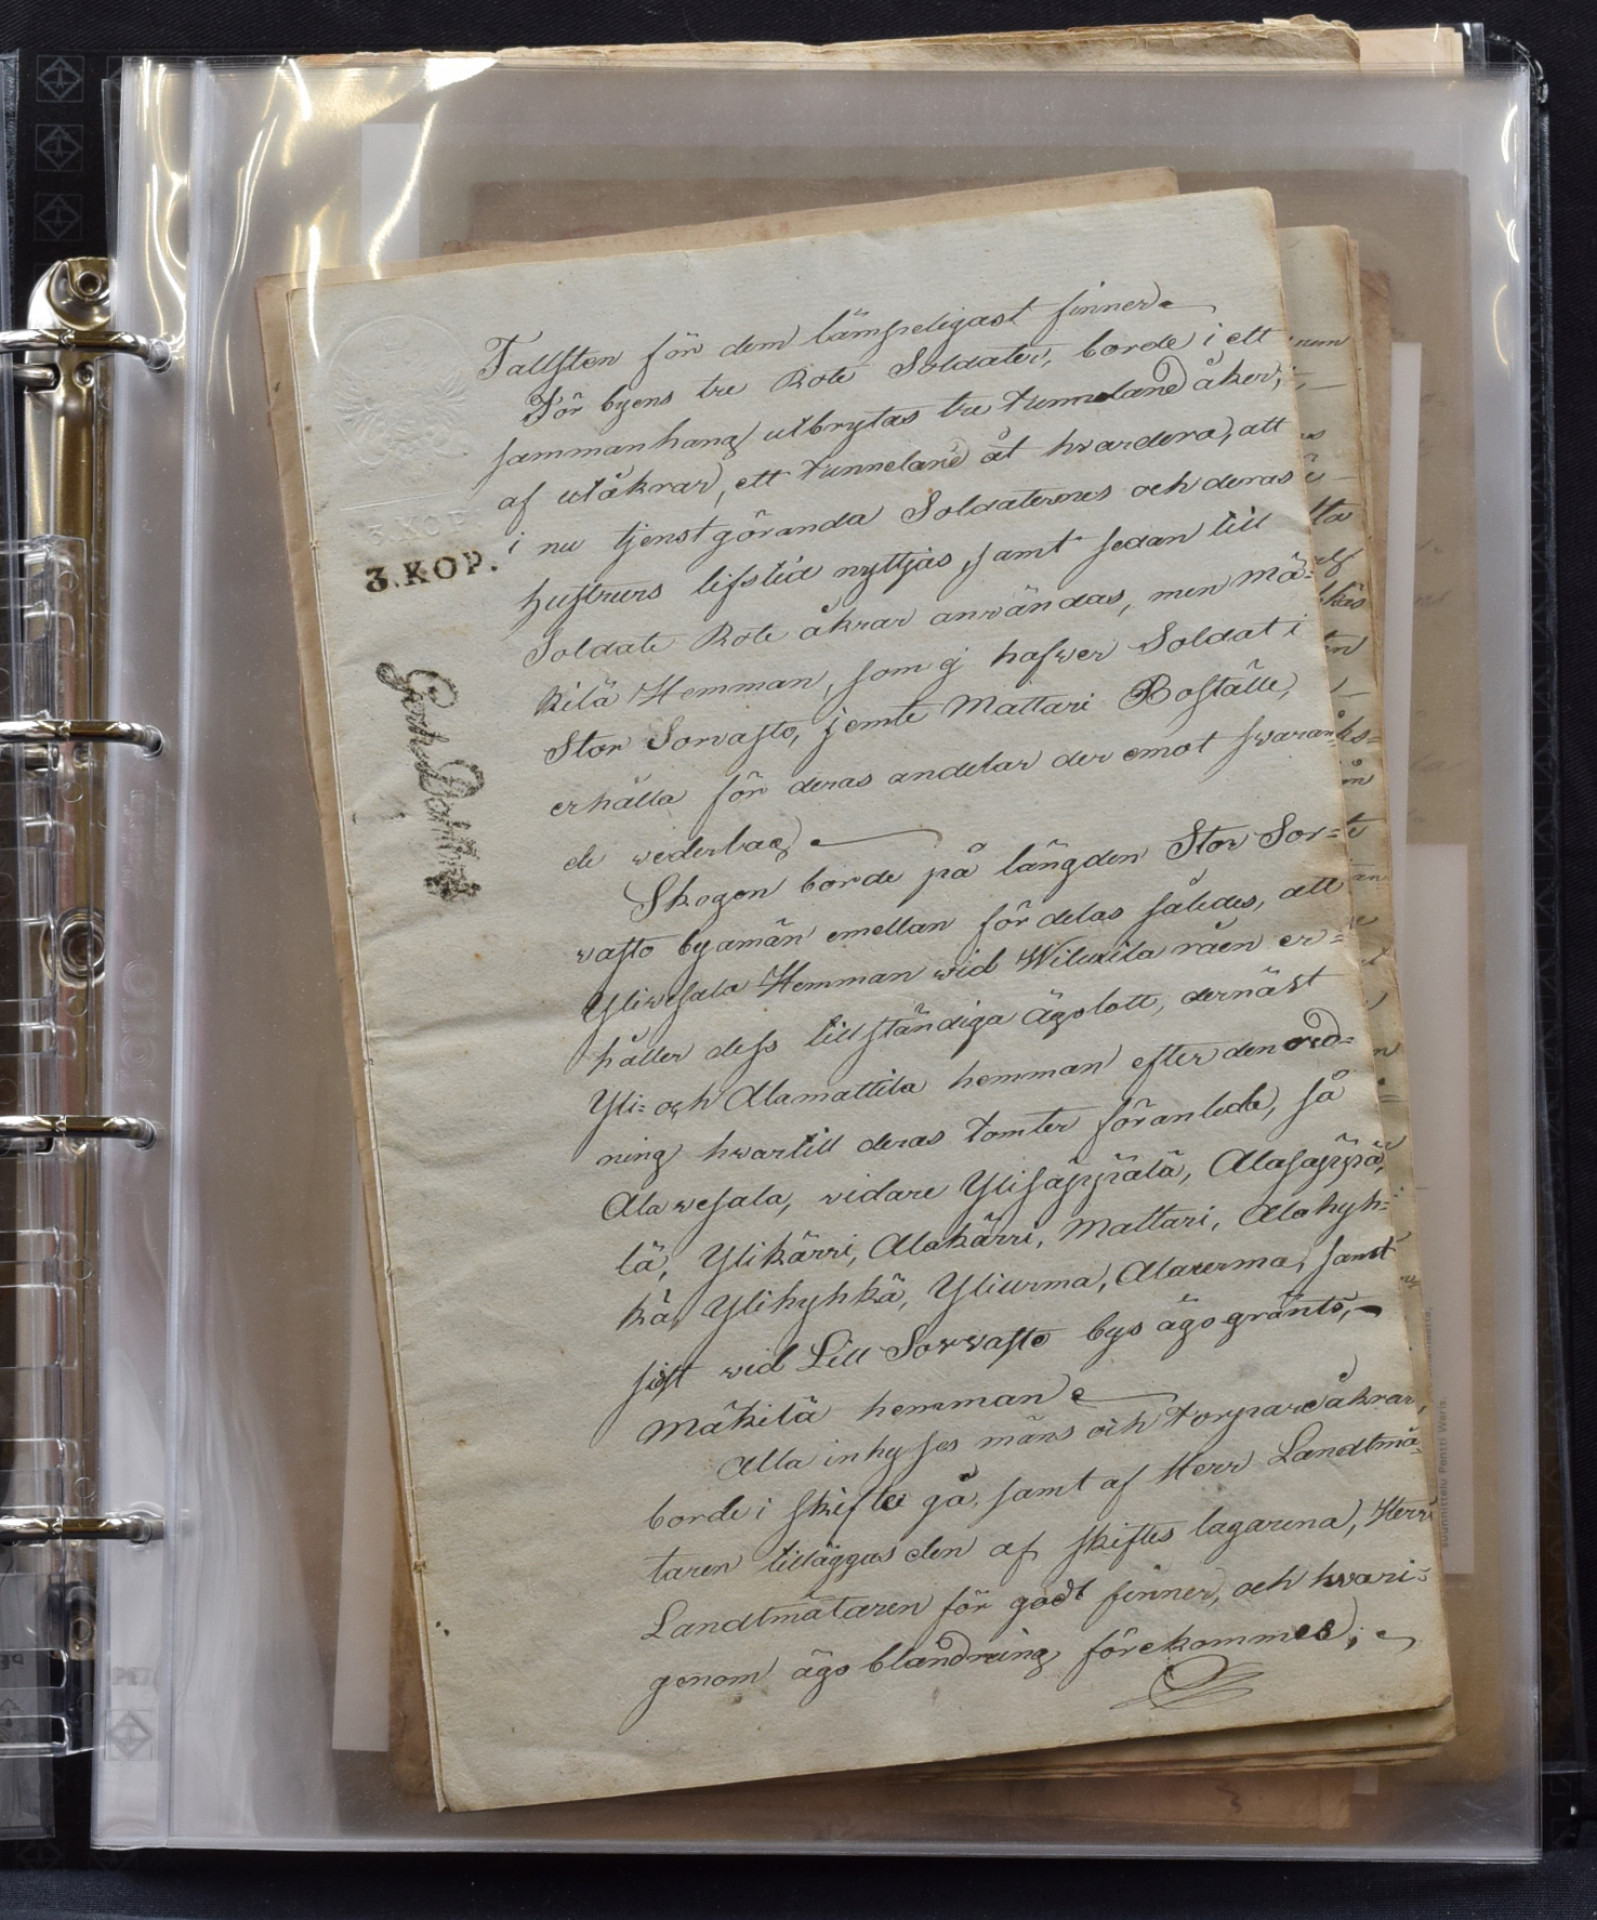 Tallsten för dem lämpeligast finner
För byens tre Rote Soldater, borde i ett
sammanhang utbrytas tre tunneland åker,
af utåkrar, ett tunneland åt hvardera, att
i nu tjenstgöranda Soldaternes och deras
hustrurs lifstid nyttjas, samt sedan till
Soldate Rote åkrar användas, men Mä=
kilä Hemman, som ej hafwer Soldat i
Stor Sorvasto, jemte Mattari Boställe,
erhålla för deras andelar der emot swaran
de wederlag
Skogen borde på längden Stor Sor=
vasto byamän emellan fördelas således, att
Yliwesala Hemman wid Wiluxila råen er=
håller dess tillständiga ägolott, dernäst
Yli= och Alamattila hemman efter den ord=
ning hwartill deras tomter föranleda, så
Alawesala, vidare Ylisäppälä, Alasäppä,
lä, Ylikärri, Alakärri, Mattari, Alahyh=
kä, Ylihyhkä, Yliurma, Alaurma, samt
sist wid Lill Sorvasto bys ägogränts,
Mäkilä hemman
Alla inhyses mäns och torpare åkrar,
borde i skifte gå, samt af Herr Landtmä=
taren tilläggas den af skiftes lagarena, Herr
Landtmätaren för godt finner, och hvari=
genom ägoblandning förekommes;
3. KOP.
3. KOP